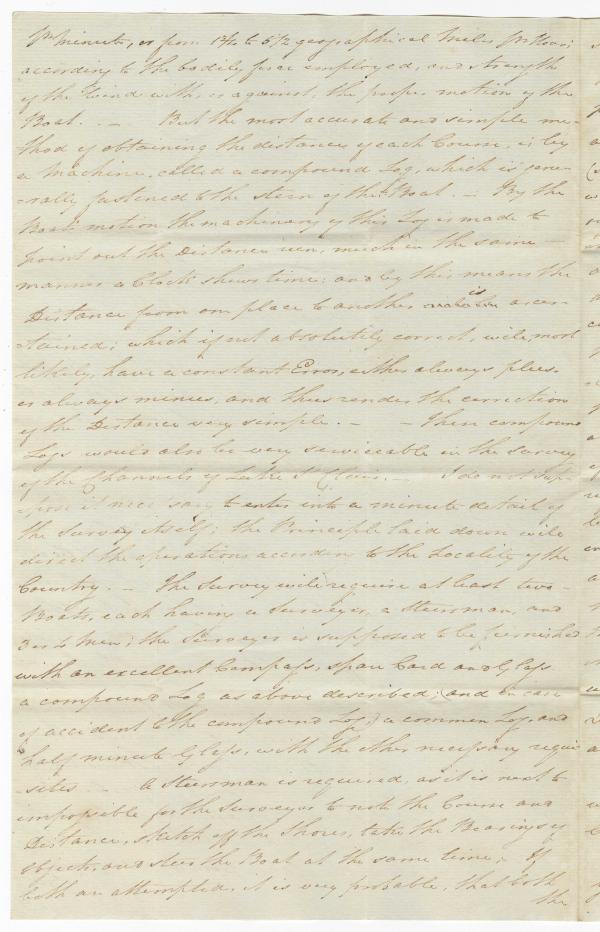 pr. minute, or from 1 3/4 to 5 1/2 geographical Miles pr. Hour;
according to the bodily force employed, and strength
of the Wind with, or against, the proper motion of the
Boat. — But the most accurate and simple me-
thod of obtaining the distance of each Course, is by
a Machine, called a compound Log, which is gene-
-rally fastened to the stern of the Boat. — By the
Boat's motion the machinery of this Log is made to
point out the Distance run, much in the same
manner a Clock shows time; and by this means the
Distance from one place to another is ascer-
-tained; which if not absolutely correct, will, most
likely, have a constant Error, either always plus,
or always minus, and thus render the correction
of the Distance very simple. — — These compound
Logs would also be very serviceable in the Survey
of the Channels of Lake St Clair. — I do not sup-
-pose it necessary to enter into a minute detail of
the Survey itself; the Principle laid down will
direct the operations according to the Locality of the
Country. — The Survey will require at least two
Boats, each having a Surveyor, a Steersman, and
3 or 4 Men; the Surveyor is supposed to be furnished
with an excellent Compass, spare Card and Glass
a compound Log as above described; (and in case
of accident to the compound Log,) a common Log, and
half minute Glass, with the other necessary requi-
sites. — A Steersman is required, as it is next to
impossible for the Surveyor to note the Course and
Distance, sketch off the Shores, take the Bearings of
Objects, and steer the Boat at the same time; If
both are attempted, it is very probable, that both
the